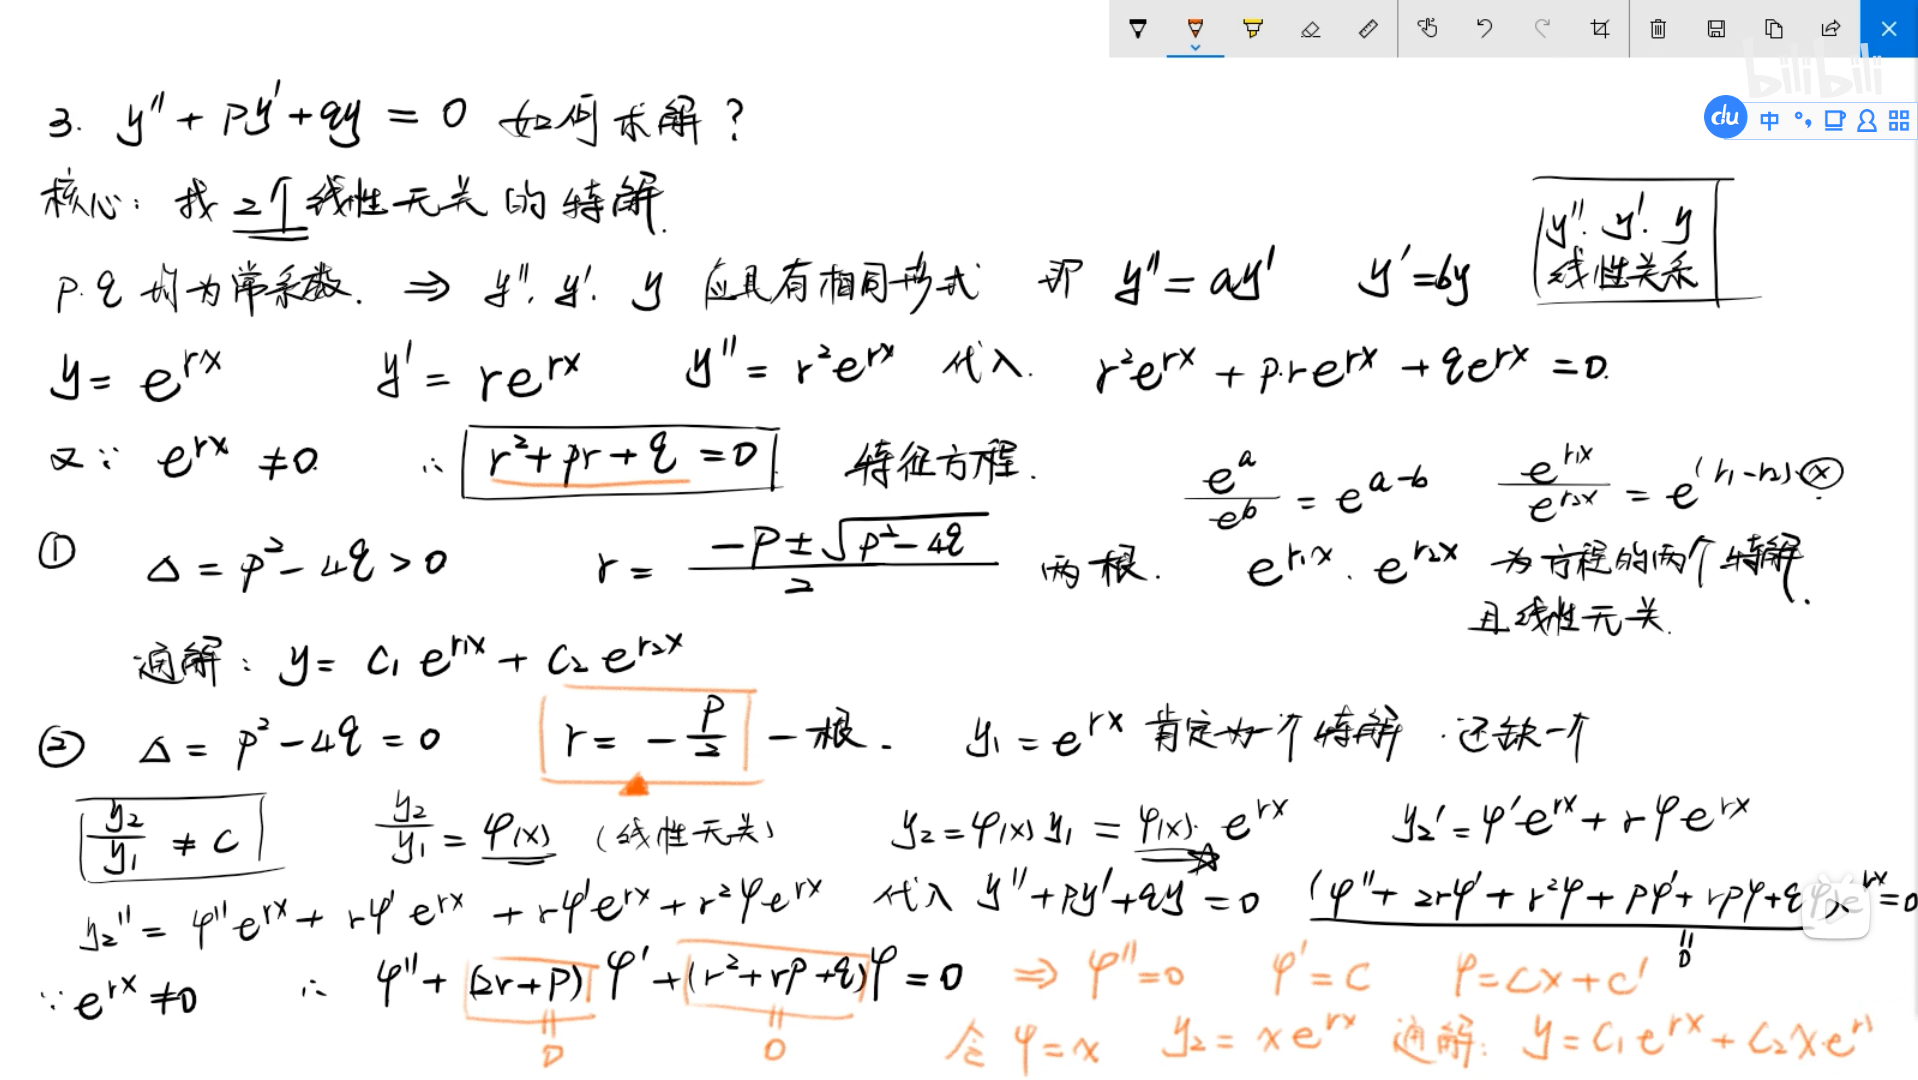 bilibili
du 中
3. y'' + py' + qy = 0 如何求解?
核心: 找2个线性无关的特解.
y''. y'. y
线性关系
p.q 均为常系数. ⇒ y''. y'. y 应具有相同形式 即 y'' = ay' y' = by
y = e^{rx} y' = re^{rx} y'' = r²e^{rx} 代入. r²e^{rx} + p·re^{rx} + qe^{rx} = 0.
又∵ e^{rx} ≠ 0. ∴ r² + pr + q = 0 特征方程.
e^a/e^b = e^{a-b} e^{r₁x}/e^{r₂x} = e^{(r₁-r₂)x}
① Δ = p² - 4q > 0 r = (-p ± √(p² - 4q))/2 两根. e^{r₁x}. e^{r₂x} 为方程的两个特解
且线性无关.
通解: y = C₁e^{r₁x} + C₂e^{r₂x}
② Δ = p² - 4q = 0 r = -p/2 一根. y₁ = e^{rx} 肯定为一个特解. 还缺一个
y₂/y₁ ≠ C y₂/y₁ = φ(x) (线性无关) y₂ = φ(x) y₁ = φ(x)· e^{rx} y₂' = φ'e^{rx} + rφe^{rx}
y₂'' = φ''e^{rx} + rφ'e^{rx} + rφ'e^{rx} + r²φe^{rx} 代入 y'' + py' + qy = 0 (φ'' + 2rφ' + r²φ + pφ' + rpφ + qφ)e^{rx} = 0
∵ e^{rx} ≠ 0 ∴ φ'' + (2r+p)φ' + (r²+rp+q)φ = 0 ⇒ φ'' = 0 φ' = C φ = Cx + C'
= 0 = 0 令 φ = x y₂ = xe^{rx} 通解: y = C₁e^{rx} + C₂x·e^{r}